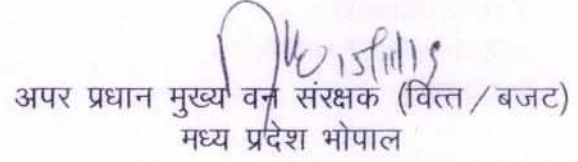 15/11/15
अपर प्रधान मुख्य वन संरक्षक (वित्त/बजट)
मध्य प्रदेश भोपाल